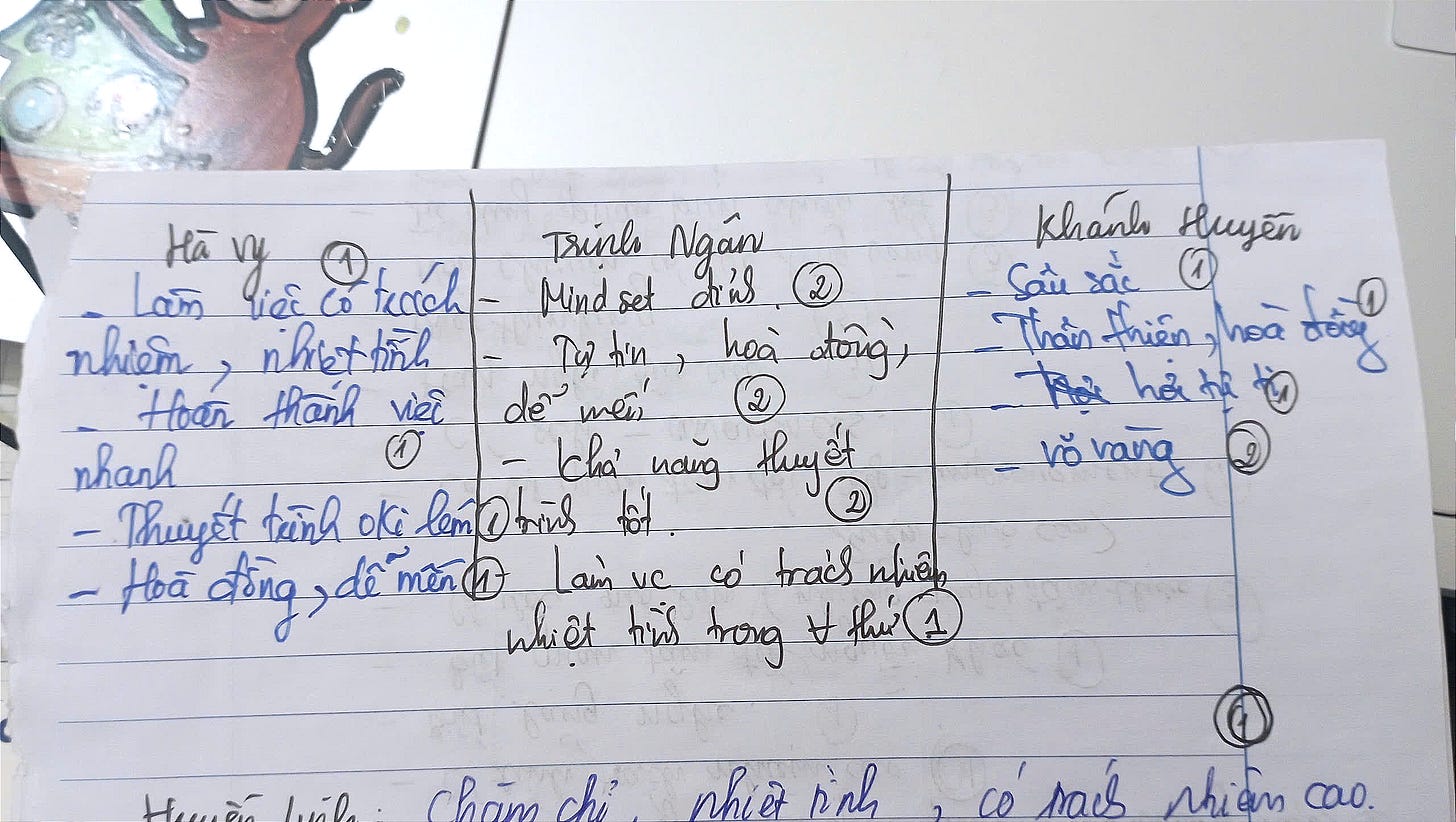 Hà Vy ①
- Làm việc có trách
nhiệm, nhiệt tình
- Hoàn thành việc
nhanh ①
- Thuyết trình oki lém ①
- Hoà đồng, dễ mến ①
Trịnh Ngân
- Mindset đỉnh. ②
- Tự tin, hoà đồng,
dễ mến ②
- Khả năng thuyết
trình tốt. ②
- Làm vc có trách nhiệm,
nhiệt tình trong ∀ thứ ①
Khánh Huyền
- Sâu sắc ①
- Thân thiện, hoà đồng ①
- ①
- rõ ràng ②
①
Huyền Linh: Chăm chỉ, nhiệt tình, có trách nhiệm cao.